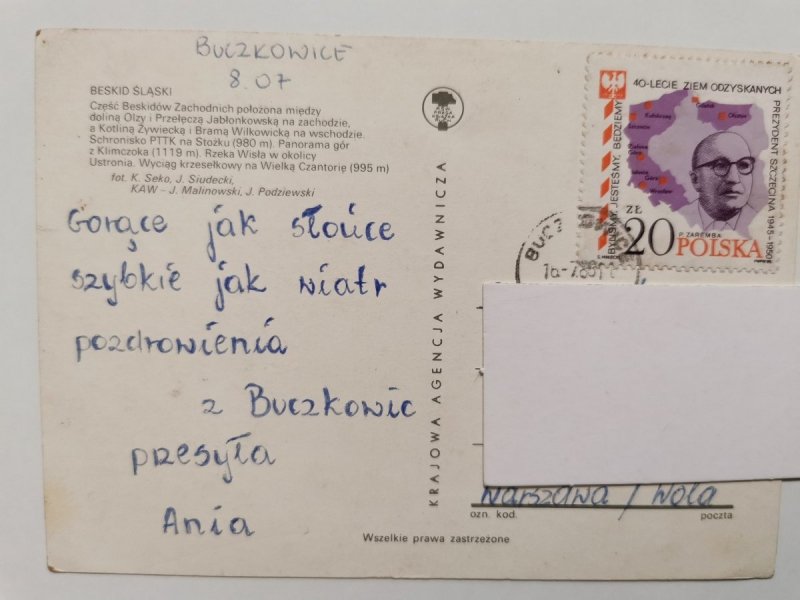 BUCZKOWICE
8.07
BESKID ŚLĄSKI
Część Beskidów Zachodnich położona między
doliną Olzy i Przełęczą Jabłonkowską na zachodzie,
a Kotliną Żywiecką i Bramą Wilkowicką na wschodzie.
Schronisko PTTK na Stożku (980 m). Panorama gór
z Klimczoka (1119 m). Rzeka Wisła w okolicy
Ustronia. Wyciąg krzesełkowy na Wielką Czantorię (995 m)
fot. K. Seko, J. Siudecki,
KAW – J. Malinowski, J. Podziewski
Gorące jak słońce
szybkie jak wiatr
pozdrowienia
z Buczkowic
przesyła
Ania
KRAJOWA AGENCJA WYDAWNICZA
Wszelkie prawa zastrzeżone
40-LECIE ZIEM ODZYSKANYCH
BYLIŚMY, JESTEŚMY, BĘDZIEMY
PREZYDENT SZCZECINA 1945-1950
Gdańsk
Olsztyn
Szczecin
Wrocław
P. ZAREMBA
ZŁ
20 POLSKA
Warszawa / Wola
ozn. kod
poczta